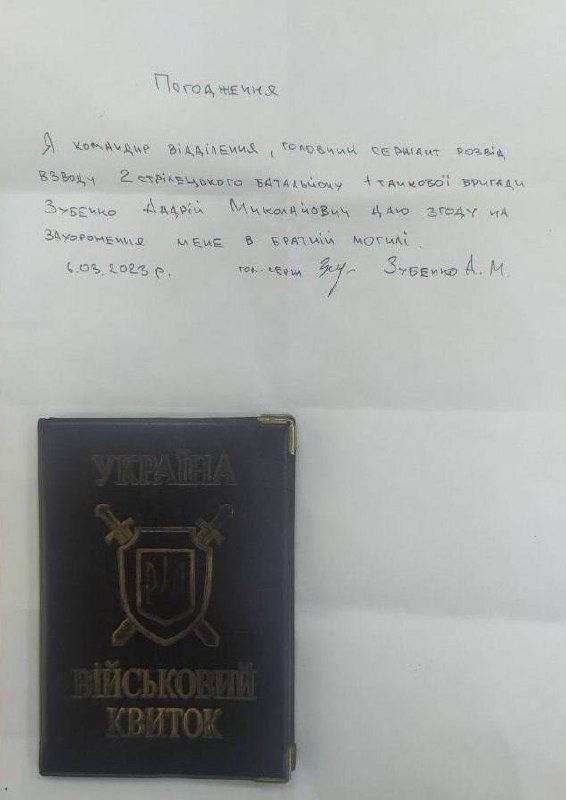 Погодження
Я командир відділення, головний сержант розвід
взводу 2 стрілецького батальйону 1 танкової бригади
Зубенко Андрій Миколайович даю згоду на
захоронення мене в братній могилі.
6.03.2023 р. гол. серж Зубенко А. М.
УКРАЇНА
ВІЙСЬКОВИЙ
КВИТОК